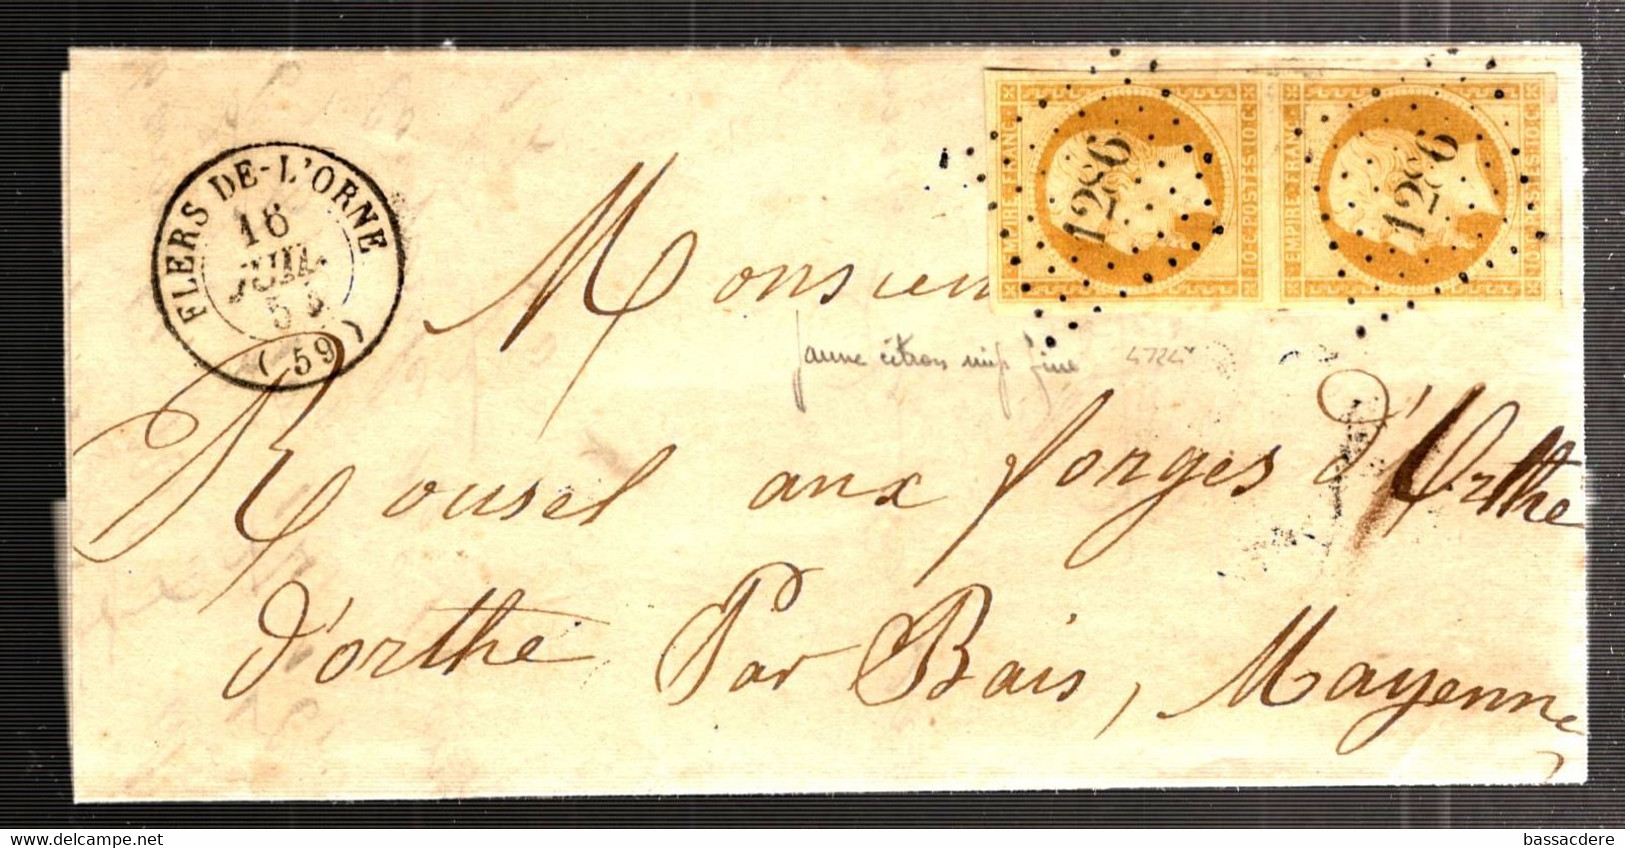 FLERS DE-L'ORNE
16
JUIL.
5
(59)
EMPIRE-FRANC.
10 C. POSTES 10 C.
1286
EMPIRE-FRANC.
10 C. POSTES 10 C.
1286
Monsieur
jaune citron
Rousel aux forges d'Orthe
d'orthe Par Bais, Mayenne
bassacdere